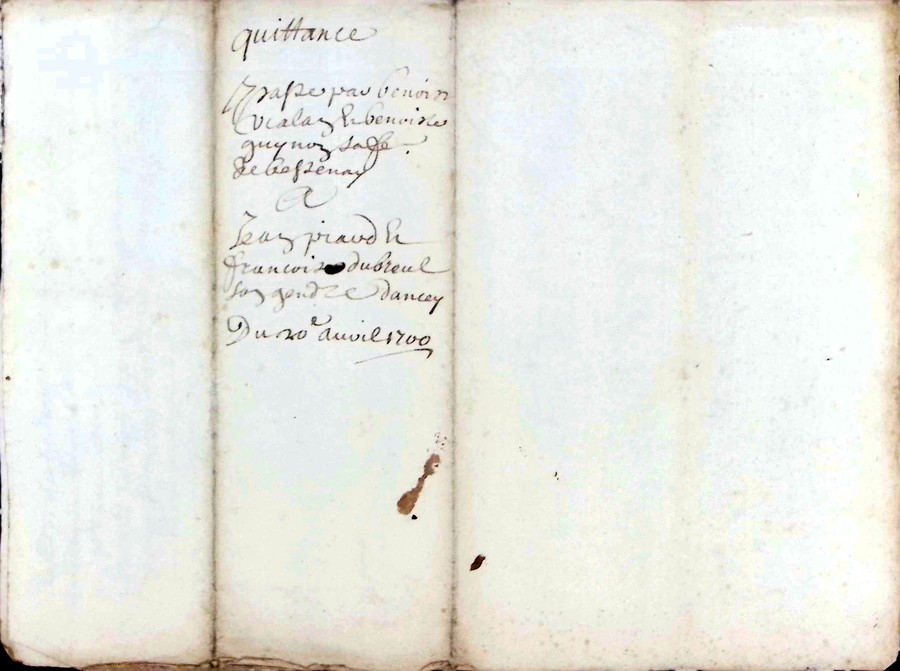 quittance
passe par benoist
vialaz & benoiste
guynoz sa fe
de bessenay
A
Jean piraud &
francois dubreul
son gendre dancey
Du 20e auvil 1700